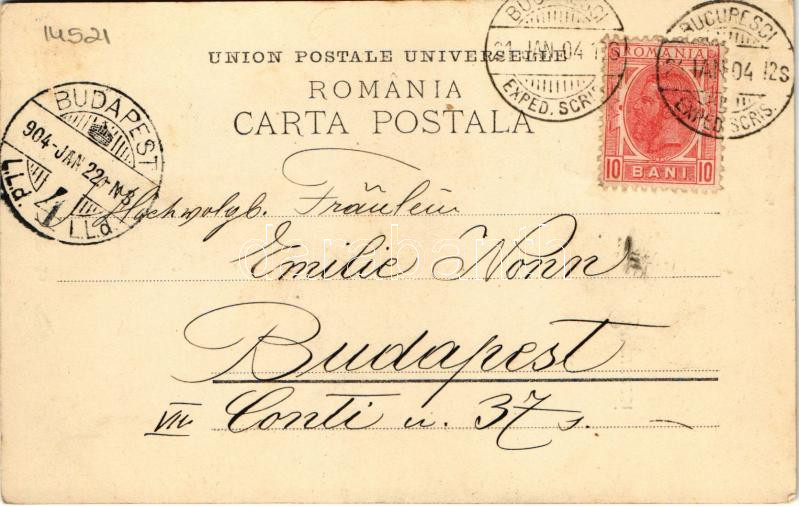 14521
UNION POSTALE UNIVERSELLE
ROMÂNIA
CARTA POSTALA
BUCURESCI
21 JAN 04
EXPED. SCRIS.
ROMANIA
10 BANI 10
BUCURESCI
JAN 04 12S
EXPED. SCRIS.
BUDAPEST
904 JAN 22 N 8
I.L.d.
Hochwolgb. Fräulein
Emilie Nonn
Budapest
VII Conti u. 37 s.
darabanth